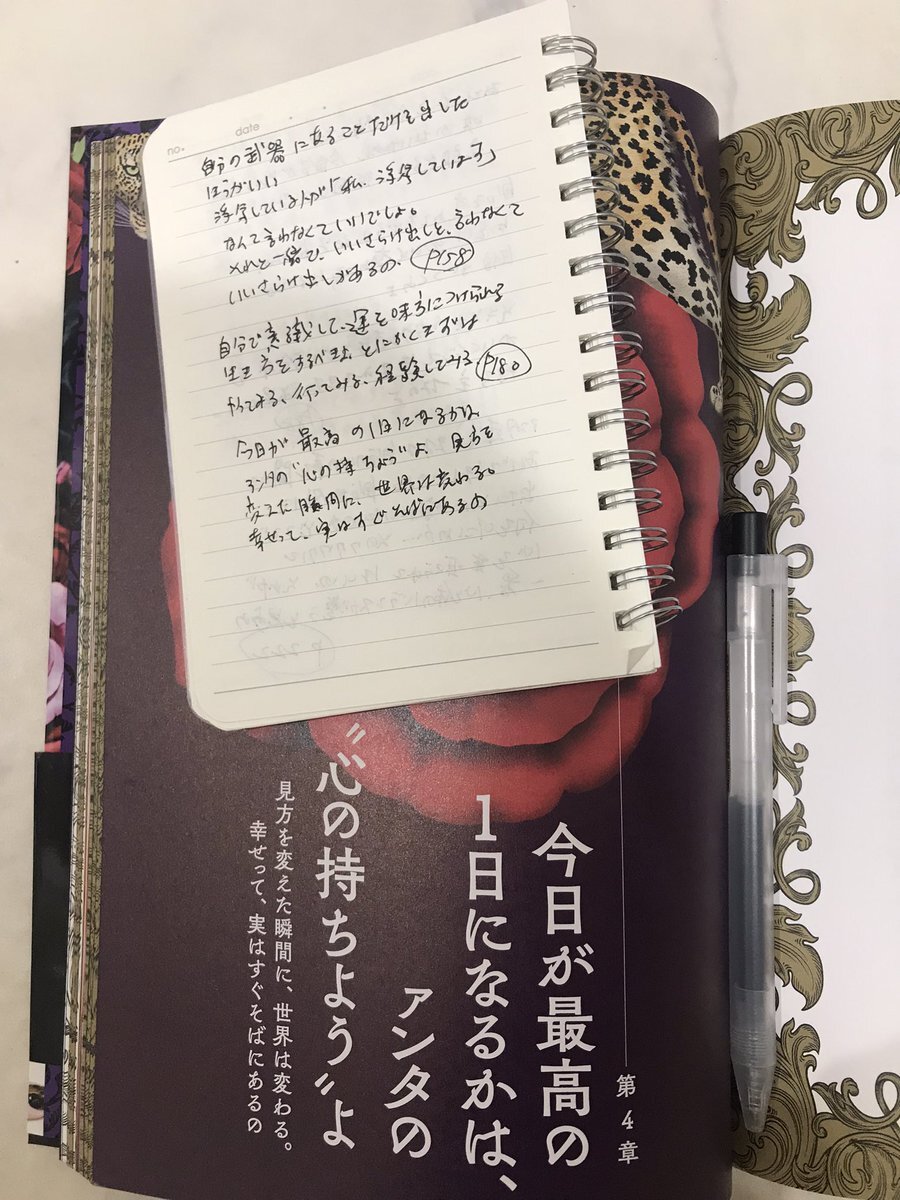 no.
date
自分の武器になることだけを出した
ほうがいい
浮気している人が「私、浮気しています」
なんて言わなくていいでしょ。
それと一緒で、いいさらけ出しと、言わなくて
いいさらけ出しがあるの、P158
自分で意識して、運を味方につけられる
生き方をするべきよ、とにかくまずは
やってみる、行ってみる、経験してみる P180
今日が最高の1日になるかは、
アンタの"心の持ちよう"よ、見方を
変えた瞬間に、世界は変わる。
幸せって、実はすぐそばにあるの
第4章
今日が最高の
1日になるかは、
アンタの
〝心の持ちよう〟よ
見方を変えた瞬間に、世界は変わる。
幸せって、実はすぐそばにあるの